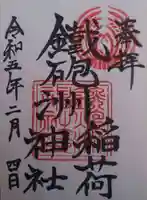 奉拝
鐵砲洲稲荷神社
令和五年二月四日